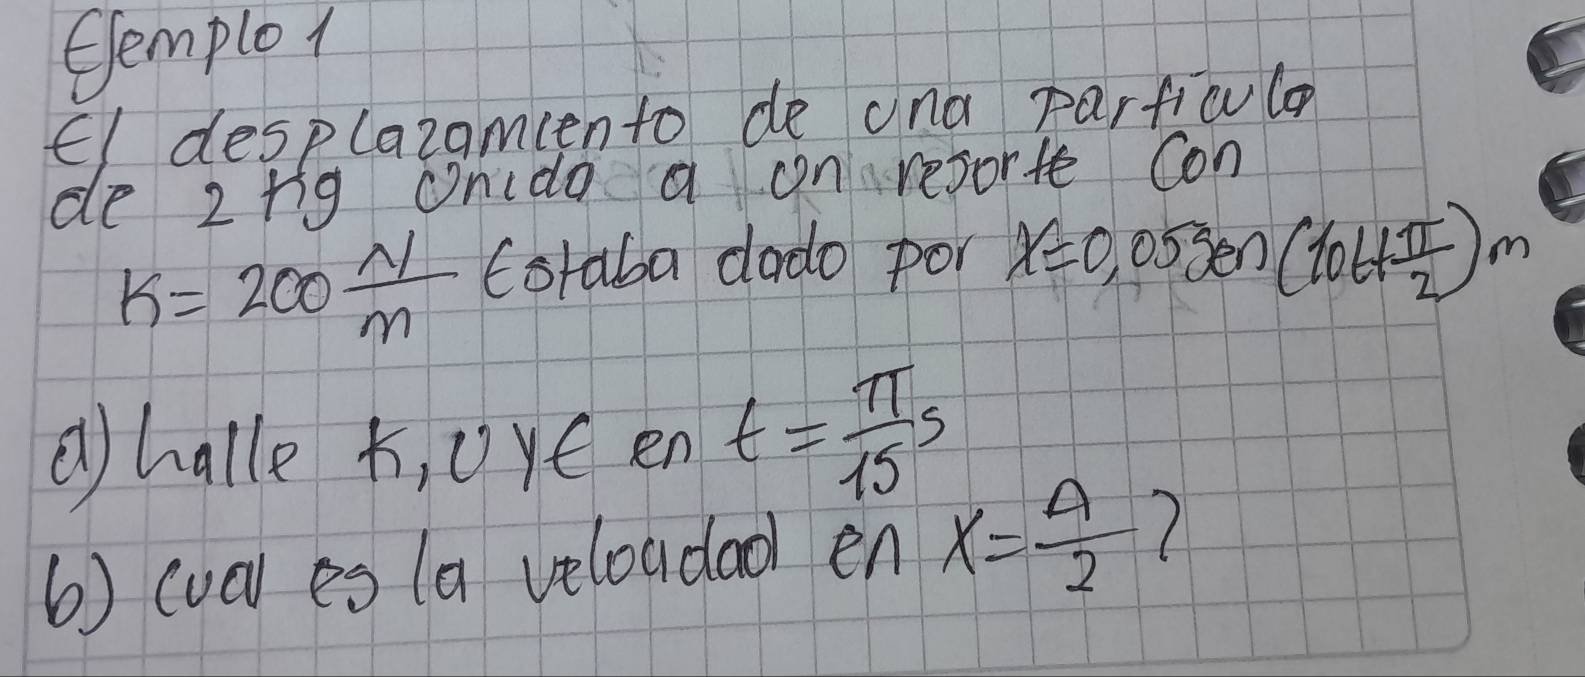 Ejemplo 1
El desplazamiento de una particula
de 2 Kg Unido a un resorte Con
K = 200 N/m Estaba dado por X = 0,05 Sen (10t + π/2) m
a) halle K, U y E en t = π/15 s
b) cual es la velocidad en X = A/2 ?